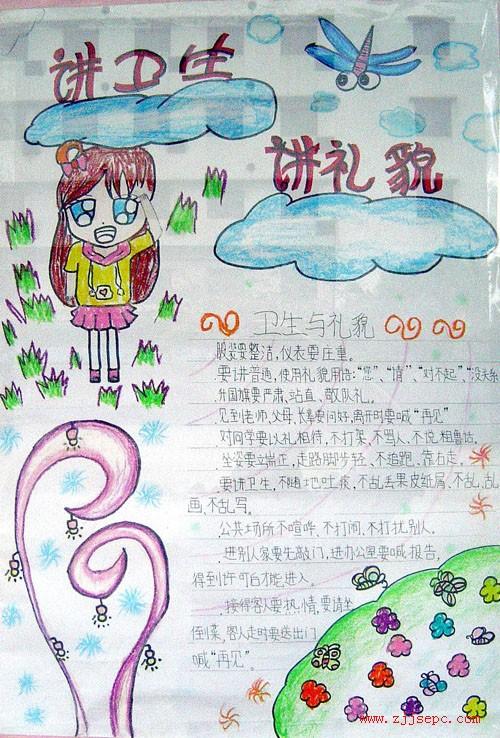 讲卫生
讲礼貌
卫生与礼貌
服装要整洁,仪表要庄重。
要讲普通,使用礼貌用语:“您”、“请”、“对不起”、“没关系
升国旗要严肃、站直、敬队礼。
见到老师、父母、长辈要问好,离开时要喊“再见”
对同学要以礼相待,不打架、不骂人、不说粗鲁话。
坐姿要立端正,走路脚步轻、不追跑、靠右走。
要讲卫生,不随地吐痰,不乱丢果皮纸屑、不乱,乱
画、不乱写。
公共场所不喧哗、不打闹、不打扰别人。
进别人家要先敲门,进办公室要喊报告,
得到许可后才能进入。
接得客人要热情,要请坐
倒茶,客人走时要送出门
喊“再见”。
www.zjjsepc.com